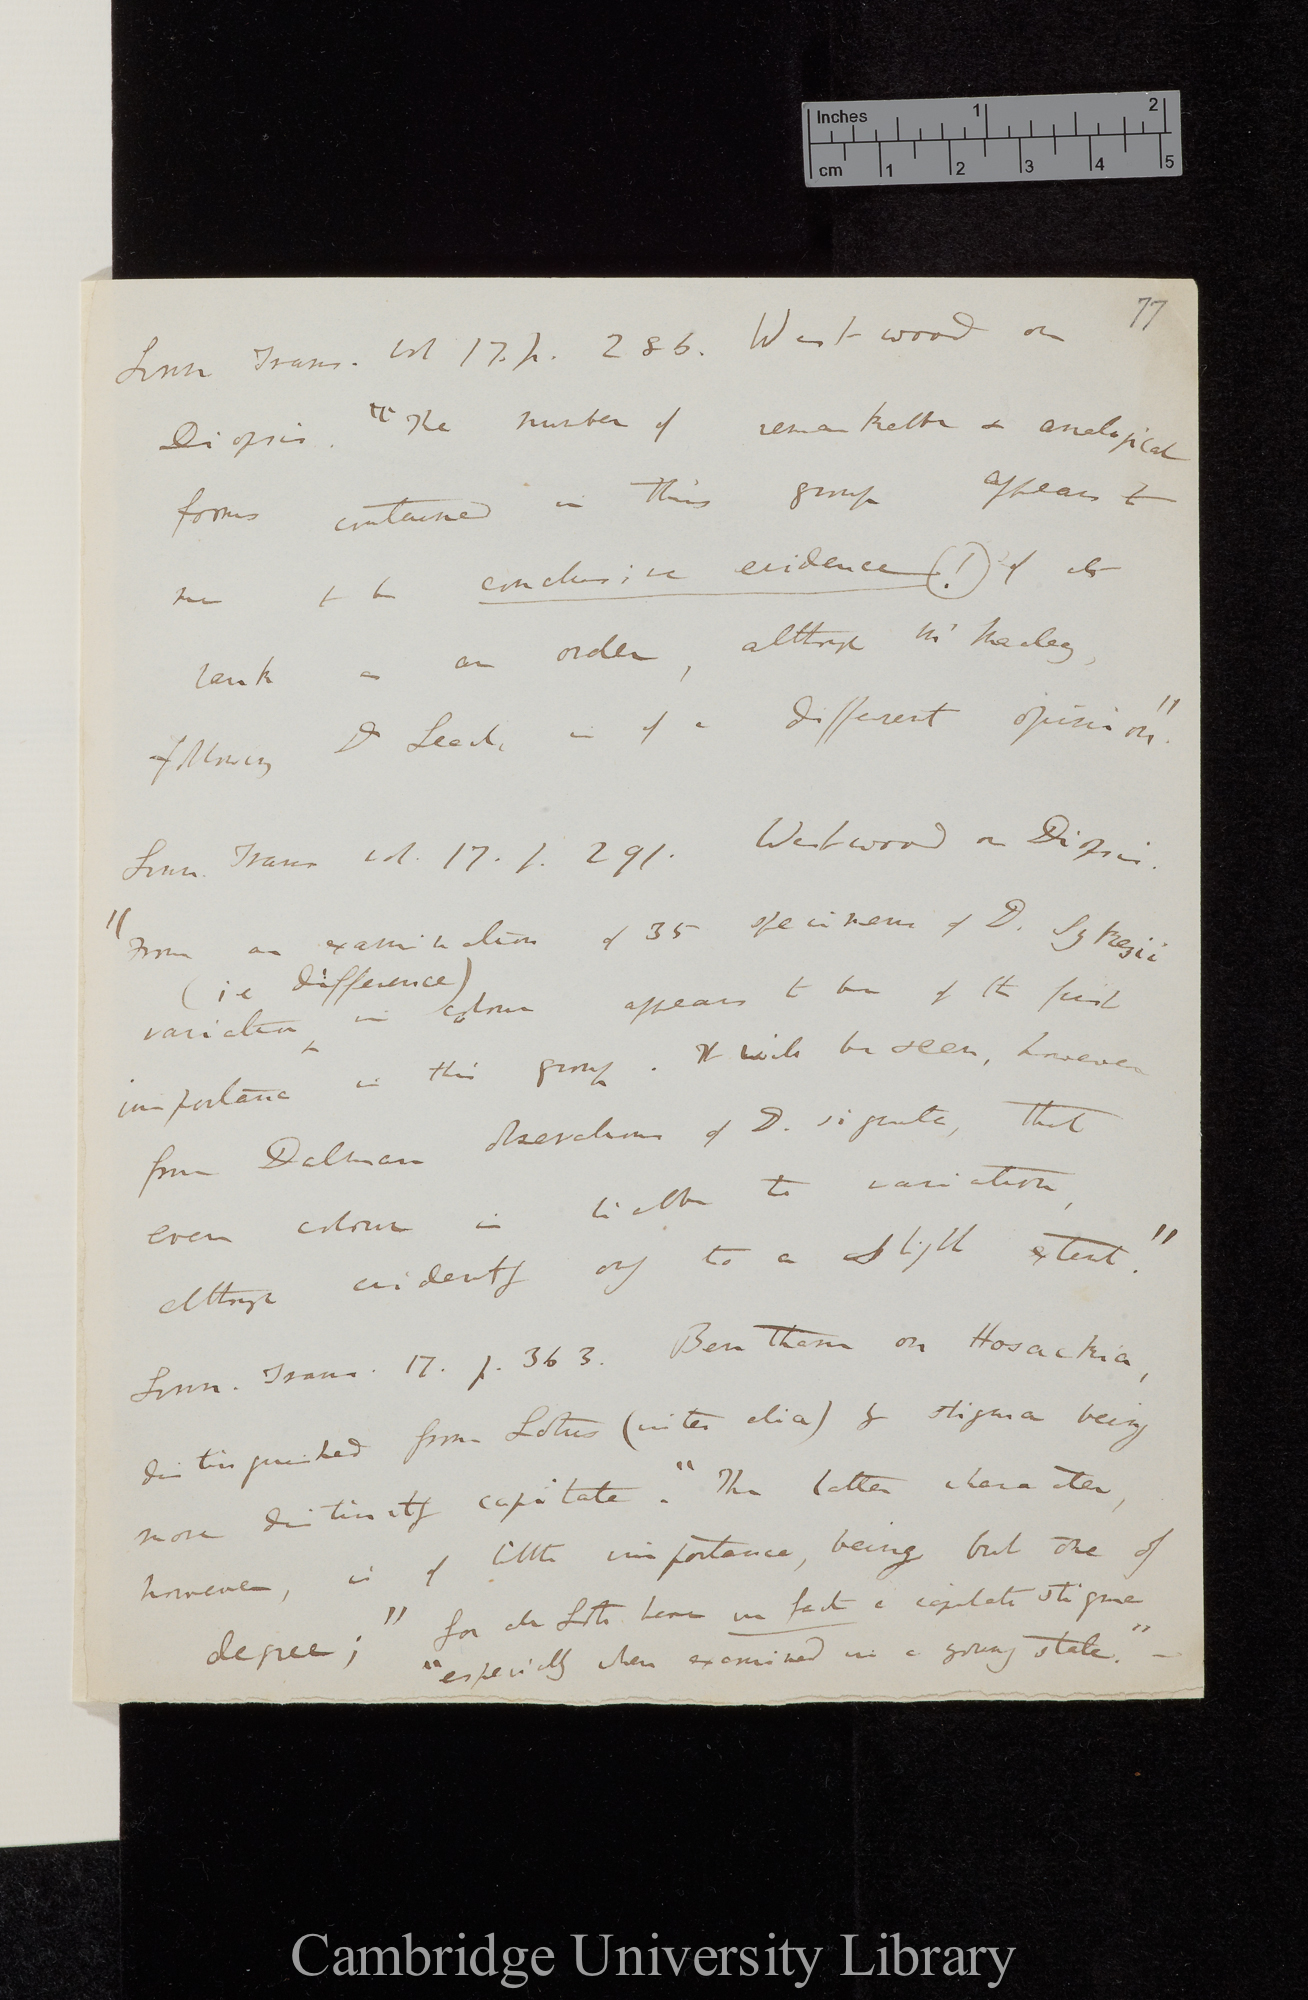 Inches 1 2
cm 1 2 3 4 5
77
Linn Trans. vol 17. p. 286. Westwood on
Diopsis. "The number of remarkable & analogical
forms contained in this group appears to
me to be conclusive evidence (!) of its
rank as an order, although Mr Macleay,
following Dr Leach, is of a different opinion".
Linn. Trans vol. 17. p. 291. Westwood on Diopsis.
"From an examination of 35 specimens of D. Sykesii
(ie difference)
variation in colour appears to be of the first
importance in this group. It will be seen, however
from Dalman observations of D. signata, that
even colour is liable to variation,
although evidently only to a slight extent."
Linn. Trans. 17. p. 363. Bentham on Hosackia,
distinguished from Lotus (inter alia) by stigma being
more distinctly capitate. "The latter character,
however, is of little importance, being but one of
degree;" for all Loti have in fact a capitate stigma
"especially when examined in a young state." —
Cambridge University Library